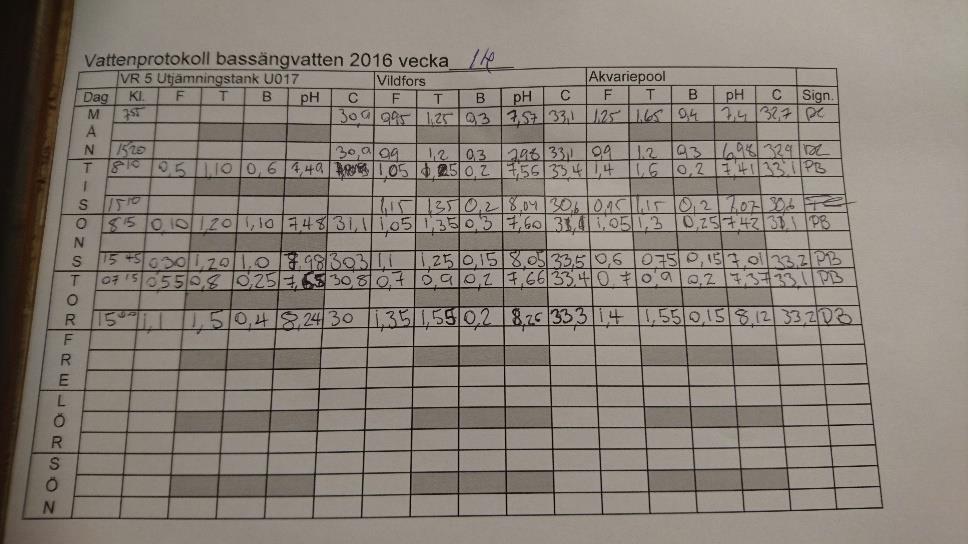 Vattenprotokoll bassängvatten 2016 vecka 14
VR 5 Utjämningstank U017 Vildfors Akvariepool
Dag Kl. F T B pH C F T B pH C F T B pH C Sign.
M 755 30,9 0,95 1,25 0,3 7,57 33,1 1,25 1,65 0,4 7,4 32,7
Å
N 1520 30,9 0,9 1,2 0,3 7,98 33,1 0,9 1,2 0,3 6,98 32,9
T 810 0,5 1,10 0,6 7,49 1,05 0,2 7,56 33,4 1,4 1,6 0,2 7,41 33,1 PB
I
S 1510 1,15 1,35 0,2 8,04 30,6 0,95 1,15 0,2 7,07 30,6
O 815 0,10 1,20 1,10 748 31,1 1,05 1,35 0,3 7,60 1,05 1,3 0,25 7,42 PB
N
S 1545 0,30 1,20 1,0 7,98 30,3 1,1 1,25 0,15 8,05 33,5 0,6 075 0,15 7,01 33,2 PB
T 0715 0,55 0,8 0,25 7,65 30,8 0,7 0,9 0,2 7,66 33,4 0,7 0,9 0,2 7,37 33,1 PB
O
R 1500 1,1 1,5 0,4 8,24 30 1,35 1,55 0,2 8,26 33,3 1,4 1,55 0,15 8,12 33,2 PB
F
R
E
L
Ö
R
S
Ö
N